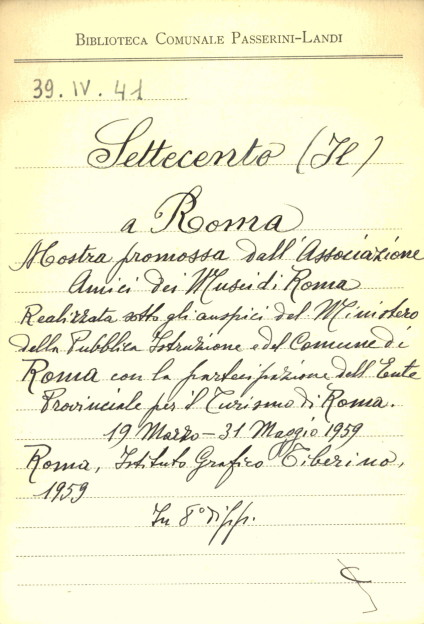 BIBLIOTECA COMUNALE PASSERINI-LANDI
39. IV. 41
Settecento (Il)
a Roma
Mostra promossa dall'Associazione
Amici dei Musei di Roma
Realizzata sotto gli auspici del Ministero
della Pubblica Istruzione e del Comune di
Roma con la partecipazione dell'Ente
Provinciale per il Turismo di Roma.
19 Marzo - 31 Maggio 1959
Roma, Istituto Grafico Tiberino,
1959
In 8° di pp.